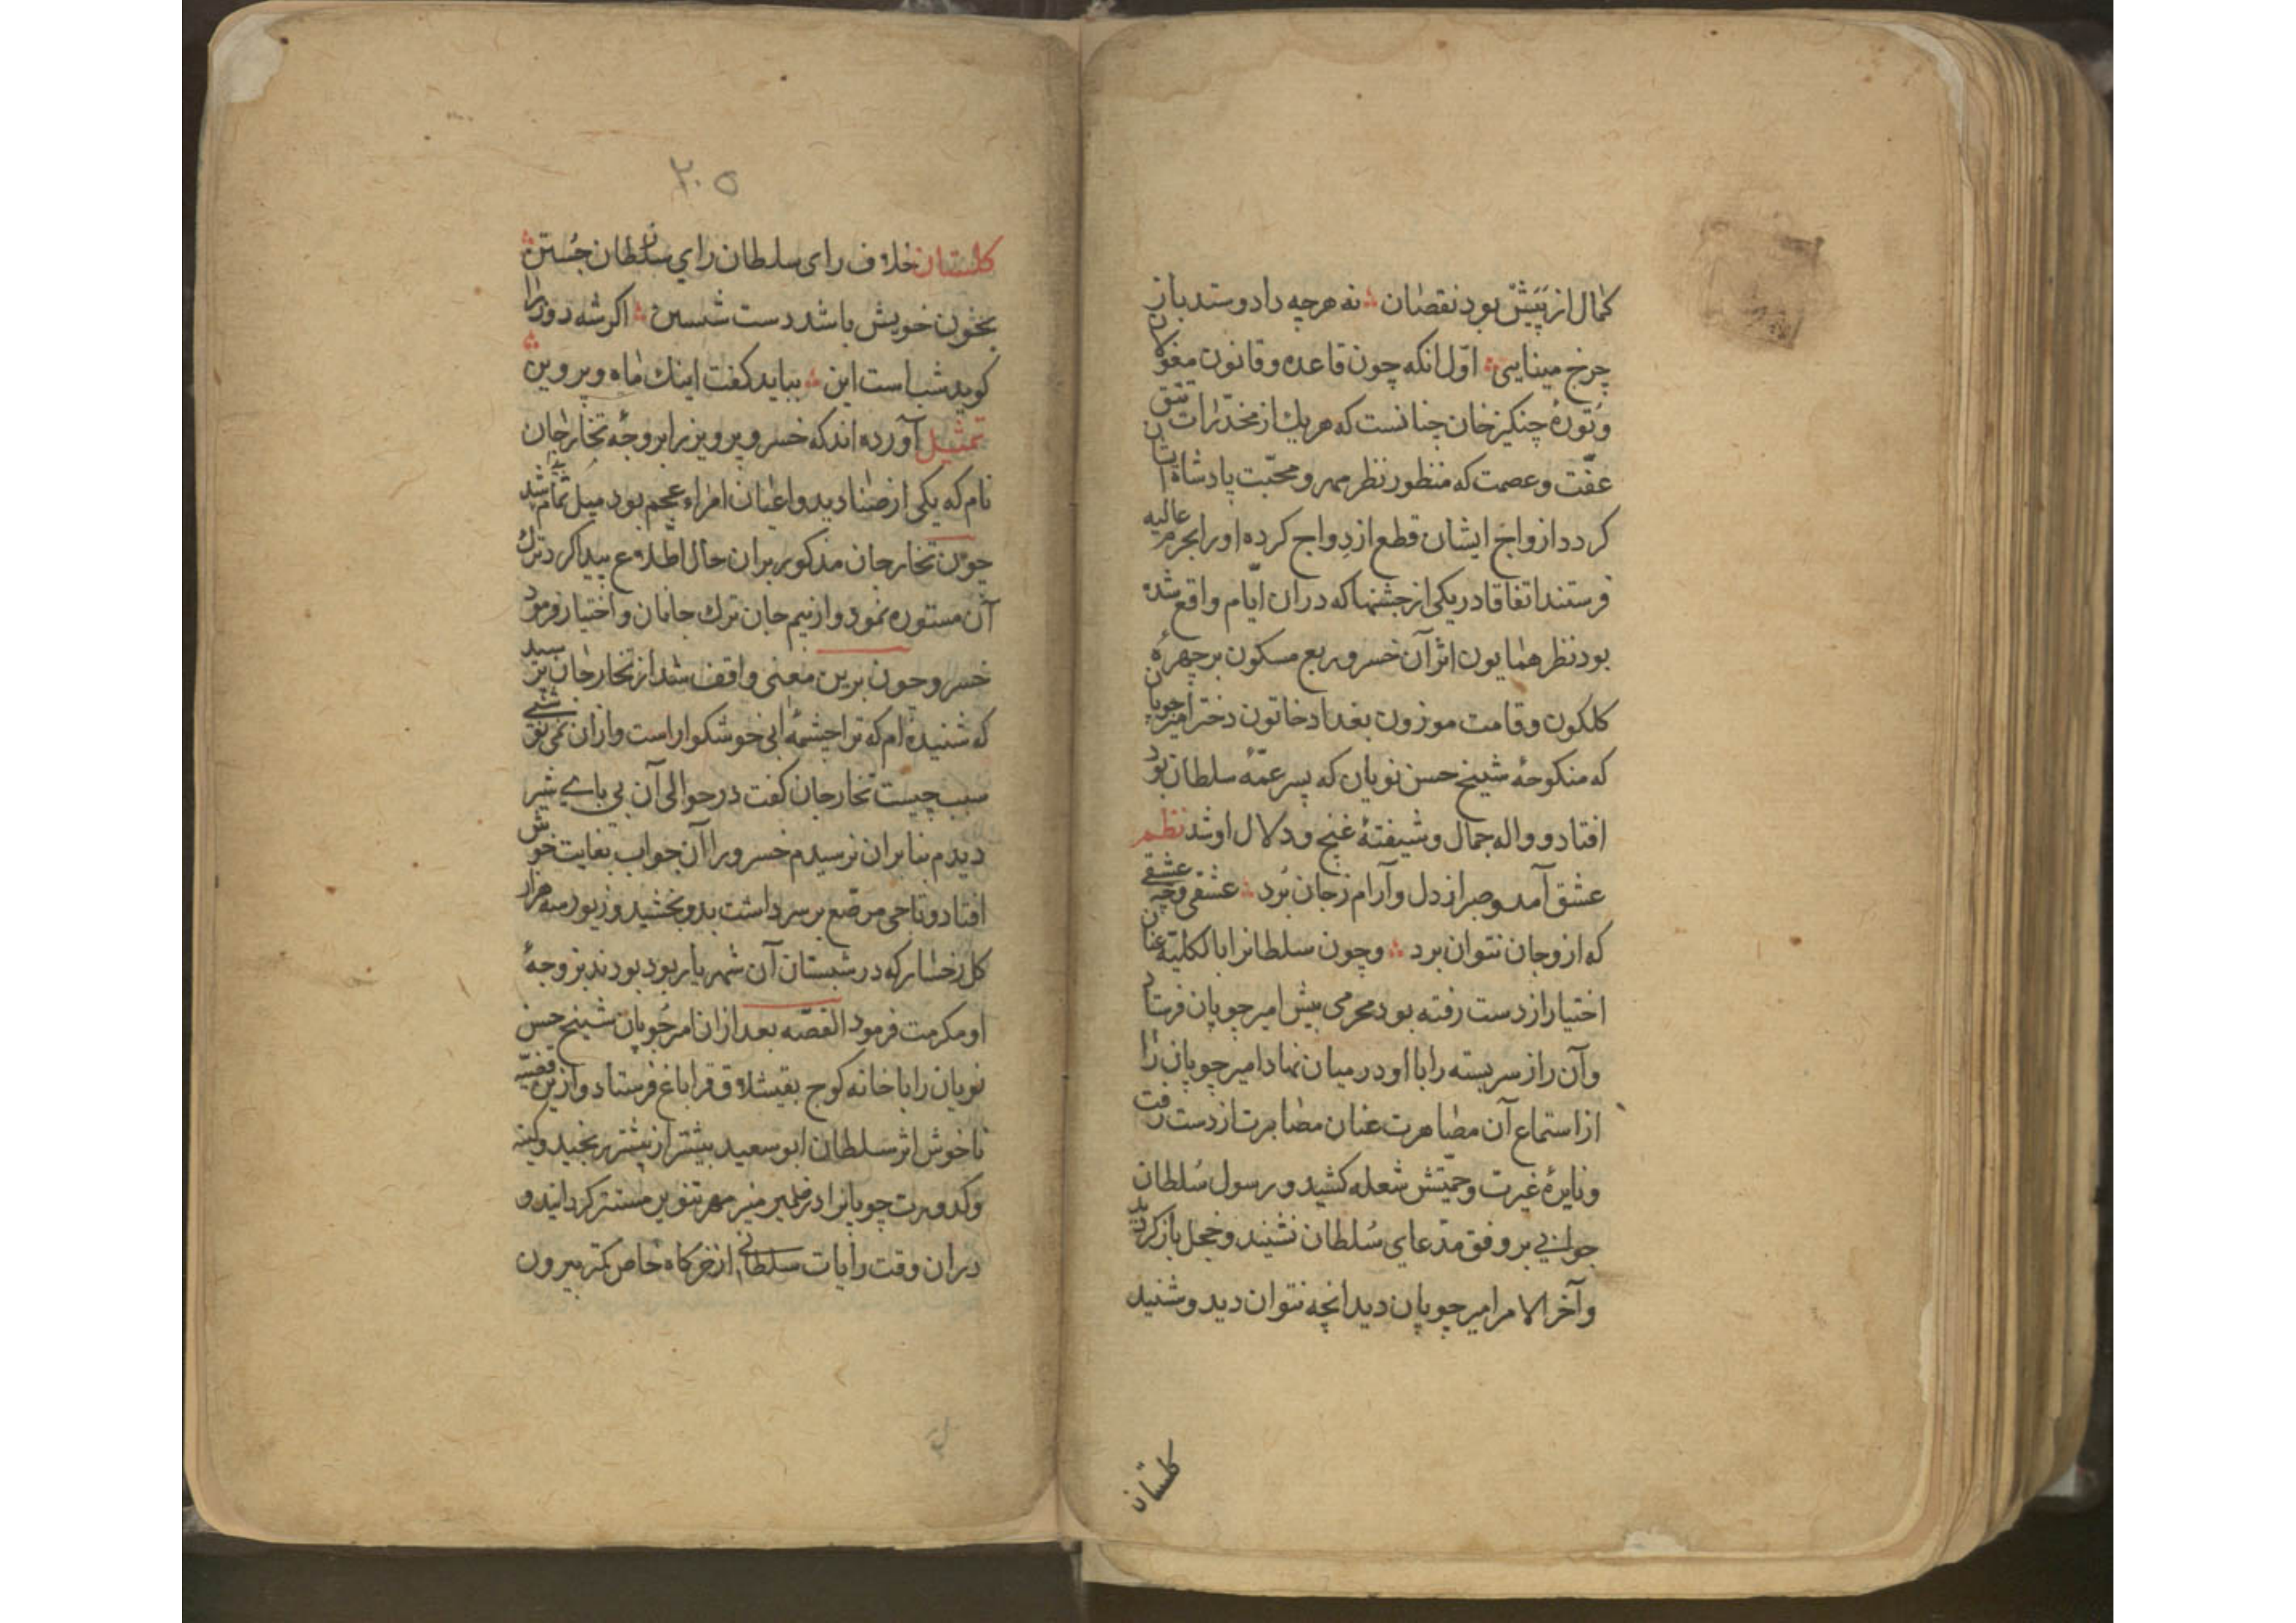 کمال از پیش بود نقصان نه هرچه داد و ستد باز
چرخ مینایی اوّل انکه چون قاعده و قانون مغولان
و تورهٔ چنکیز خان چنانست که هر یك از مخدّرات تتق
عفّت و عصمت که منظور نظر مهر و محبّت پادشاه ایشان
کردد ازواج ایشان قطع ازدواج کرده او را بحرم عالیه
فرستند اتفاقا در یکی از جشنها که دران ایّام واقع شده
بود نظر همایون اثر آن خسرو ربع مسکون بر چهرهٔ
کلکون و قامت موزون بغداد خاتون دختر امیر چوپان
که منکوحهٔ شیخ حسن نویان که پسر عمّهٔ سلطان بود
افتاد و واله جمال و شیفتهٔ غنج و دلال او شد نظم
عشق آمد و صبر از دل و آرام ز جان برد عشقی و چه عشقی
که ازو جان نتوان برد و چون سلطانرا بالکلیّه عنان
اختیار از دست رفته بود محرمی پیش امیر چوپان فرستاد
و آن راز سربسته را با او در میان نهاد امیر چوپان را
از استماع آن مصاهرت عنان مصابرت از دست رفت
و نایرهٔ غیرت و حمیّتش شعله کشید و رسول سُلطان
جوابی بر وفق مدّعای سُلطان نشنید و خجل باز کردید
و آخر الامر امیر چوپان دید انچه نتوان دید و شنید
کلستان
۲۰۵
کلستان خلاف رای سلطان رای سلطان جُستن
بخون خویش باشد دست شستن اکر شه روز را
کوید شب است این بباید کفت اینك ماه و پروین
تمثیل آورده اند که خسرو پرویز را بر وجهٔ تخارجان
نام که یکی از صنادید و اعیان امراء عجم بود میل تمام پیدا شد
چون تخارجان مذکور بران حال اطّلاع پیدا کرد ترك
آن مستوره نمود و از بیم جان ترك جانان و اختیار فرمود
خسرو چون برین معنی واقف شد از تخارجان پرسید
که شنیده ام که ترا چشمهٔ آبی خوشکوار است و ازان نمی نوشی
سبب چیست تخارجان کفت در حوالی آن پی پای شیر
دیدم بنا بران ترسیدم خسرو را آن جواب بغایت خوش
افتاد و تاجی مرصّع بر سر داشت بدو بخشید و زیور سه هزار
کل رخسار که در شبستان آن شهریار بود بودند بزوجهٔ
او مکرمت فرمود القصّه بعد ازان امیر چوپان شیخ حسن
نویان را با خانه کوچ بقیشلاق قراباغ فرستاد و ازین قضیّه
ناخوش اثر سلطان ابو سعید بیشتر از پیشتر رنجید و کینه
و کدورت چوپانرا در ضمیر منیر مهر تنویر مستتر کردانید و
دران وقت رایات سلطانی از خرکاه خاص کمتر بیرون